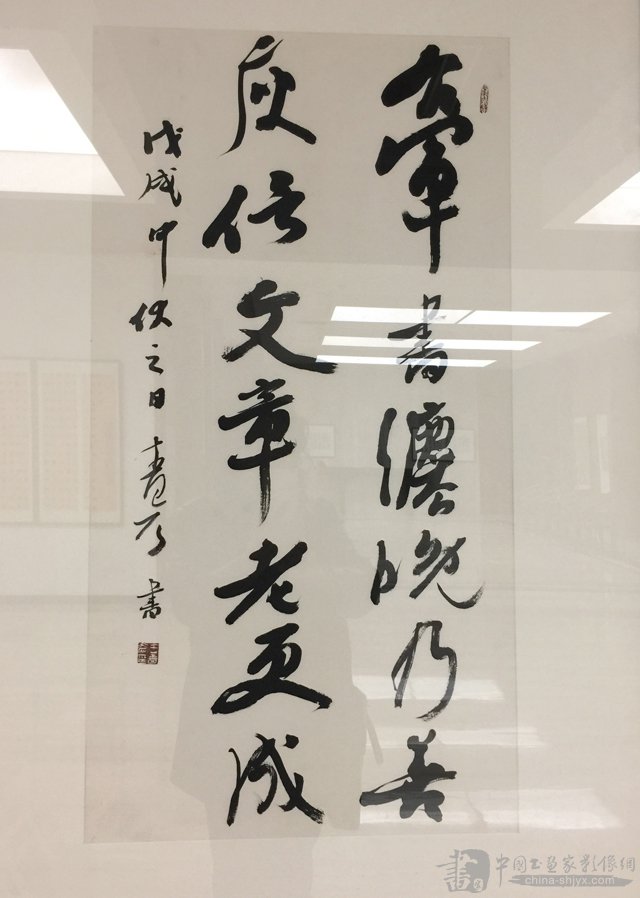 右軍書灋晚乃善
庾信文章老更成
戊戌中伏之日
書
中國书画家影像網
china-shjyx.com